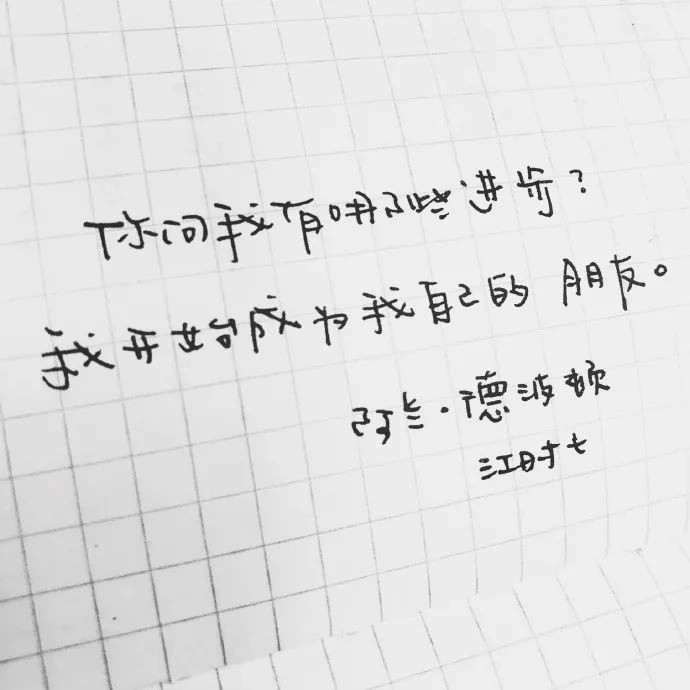 你问我有哪些进步?
我开始成为我自己的朋友。
阿兰·德波顿
江时七